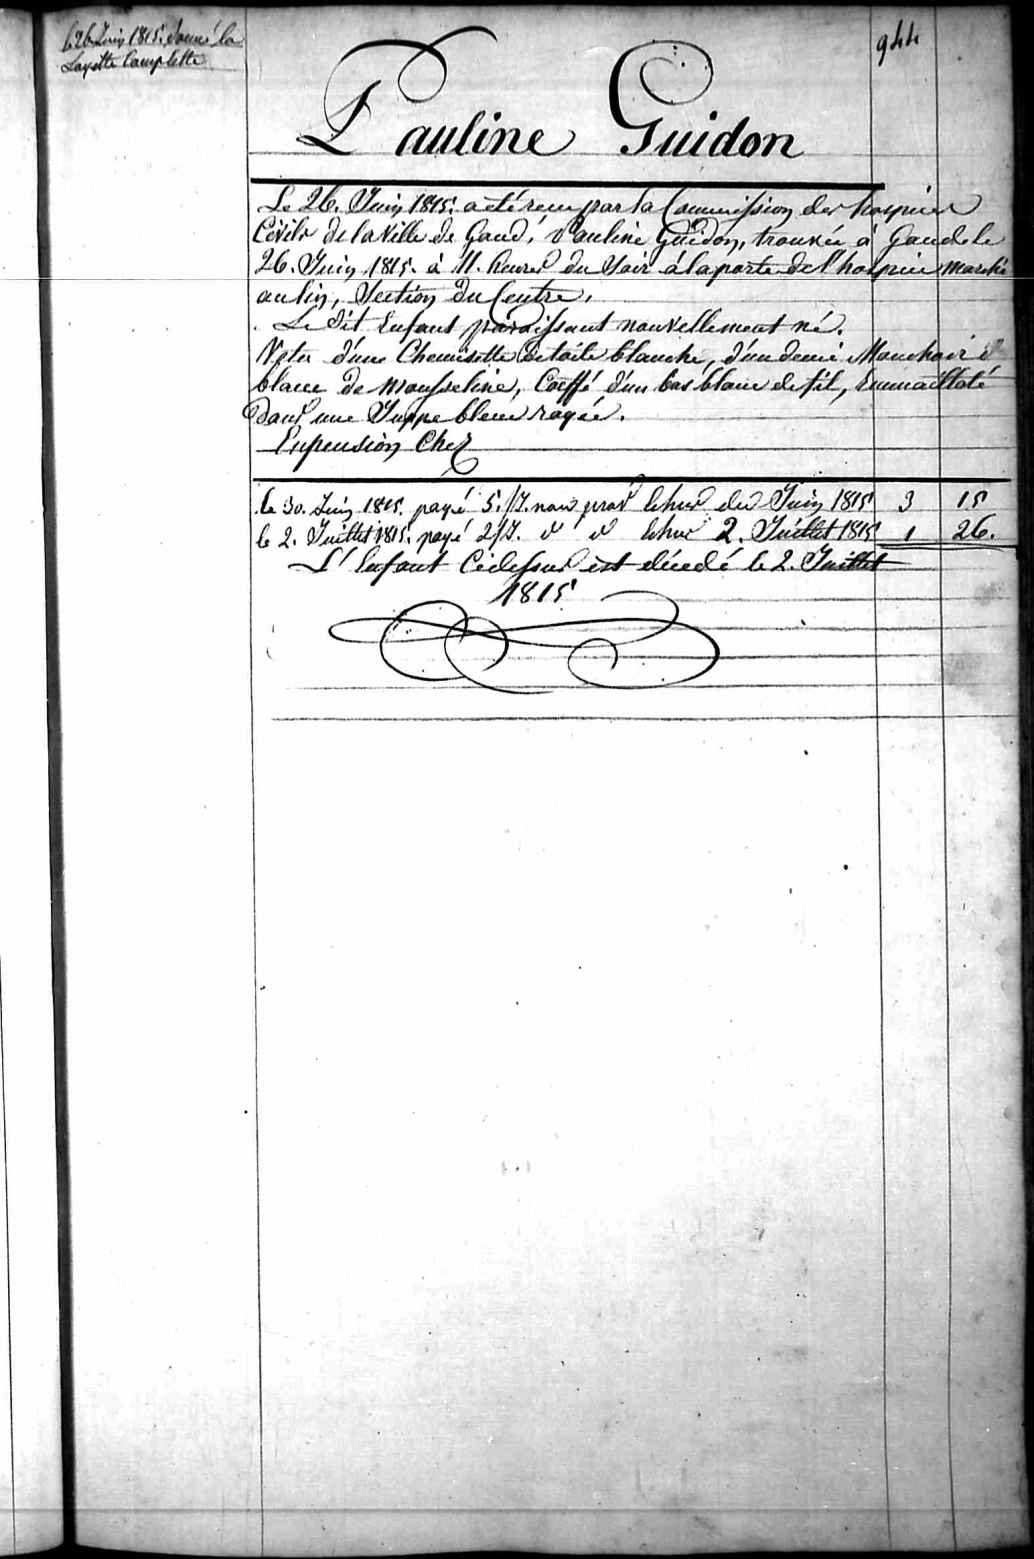 le 26 Juin 1815. donné la
Layette Complette
944
Pauline Guidon
Le 26. Juin 1815. a été recu par la Commission des hospices
Civils de la Ville de Gand, Pauline Guidon, trouvée à Gand le
26. Juin 1815. à 11. heures du Soir à la porte de l'hospice marché
au lin, Section du Centre,
Le dit Enfant paraissant nouvellement né.
Vetu d'une Chemisette de toile blanche, d'un demi Mouchoir
blanc de mousseline, Coeffé d'un bas blanc de fil, Emmailloté
dans une Juppe bleue rayée.
Enpension Chez
le 30. Juin 1815. payé 5./J. nour prov. échus du Juin 1815 3 15
le 2. Juillet 1815. payé 2/J. d d échus 2. Juillet 1815 1 26.
L'Enfant Cidessus est décédé le 2. Juillet
1815